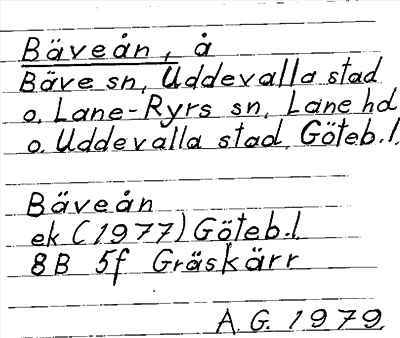 Bäveån, å
Bäve sn, Uddevalla stad
o. Lane-Ryrs sn, Lane hd
o. Uddevalla stad, Göteb.l.
Bäveån
ek (1977) Göteb.l.
8B 5f Gräskärr
A.G. 1979.